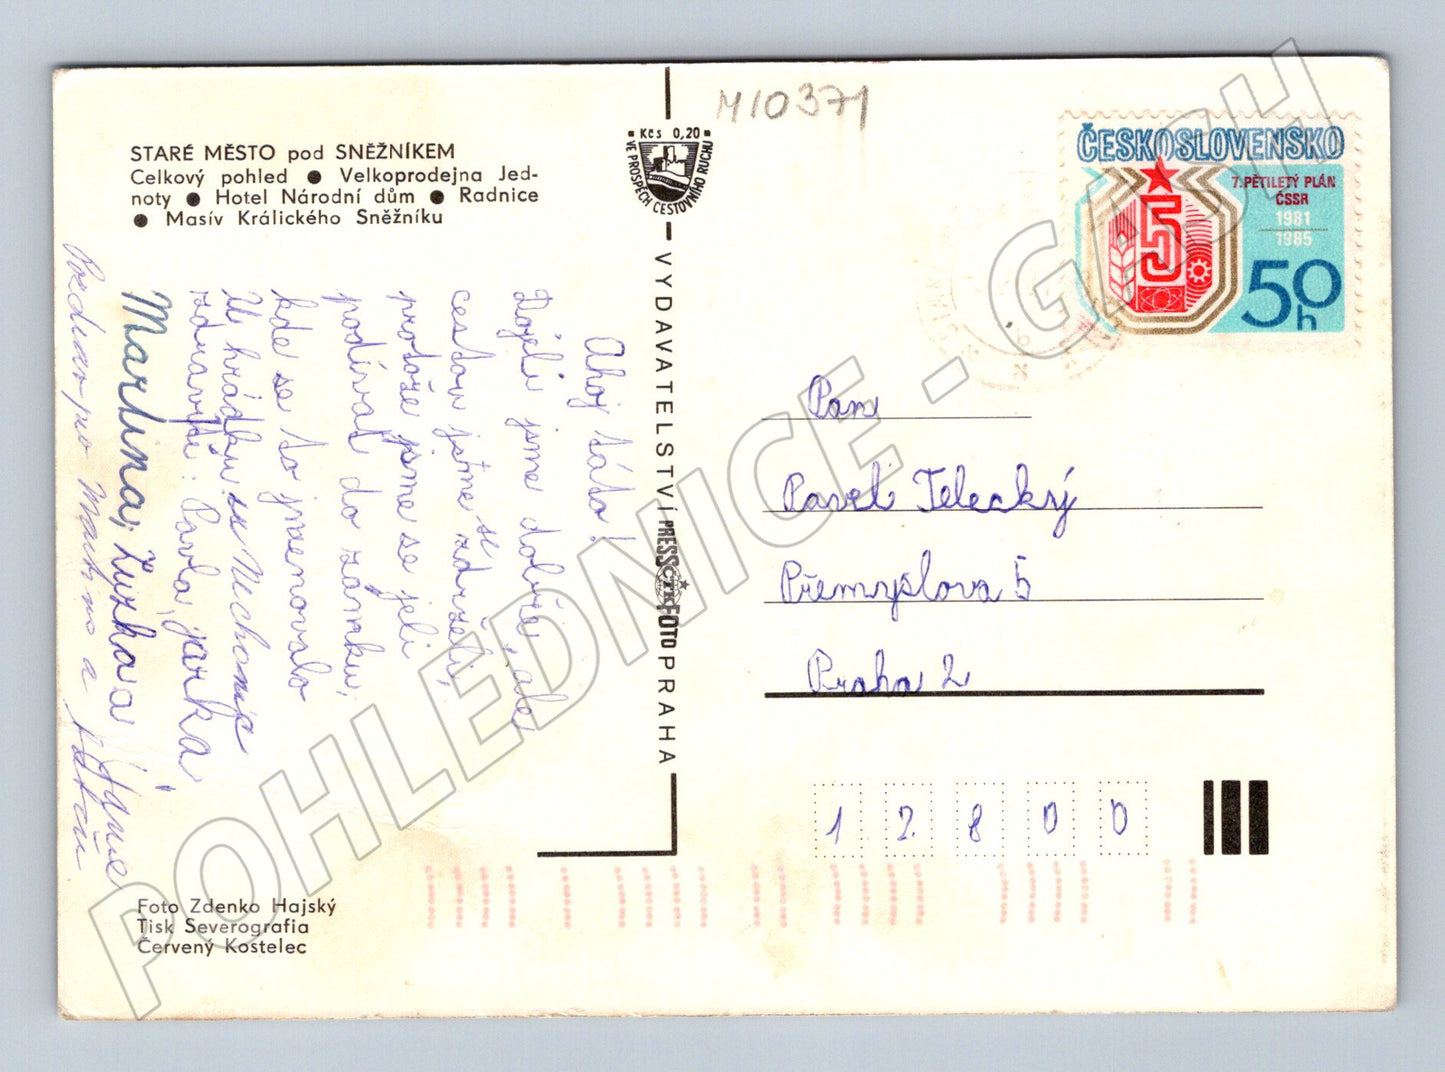 STARÉ MĚSTO pod SNĚŽNÍKEM
Celkový pohled ● Velkoprodejna Jed-
noty ● Hotel Národní dům ● Radnice
● Masív Králického Sněžníku
M10371
Kčs 0,20
VE PROSPĚCH CESTOVNÍHO RUCHU
ČESKOSLOVENSKO
7. PĚTILETÝ PLÁN
ČSSR
1981
1985
5
50 h
Ahoj táto!
Dojeli jsme dobře, ale
cestou jsme se zdrželi,
protože jsme se jeli
podívat do zámku,
kde se to jmenovalo
U hrádku u Nechanic
zdraví tě: Pavla, jarka
Martina, Zuzka a
Pozdrav pro Martinu a
VYDAVATELSTVÍ PRESSFOTO PRAHA
ČTK
Pan
Pavel Telecký
Přemyslova 5
Praha 2
1 2 8 0 0
Foto Zdenko Hajský
Tisk Severografia
Červený Kostelec
POHLEDNICE - GASH